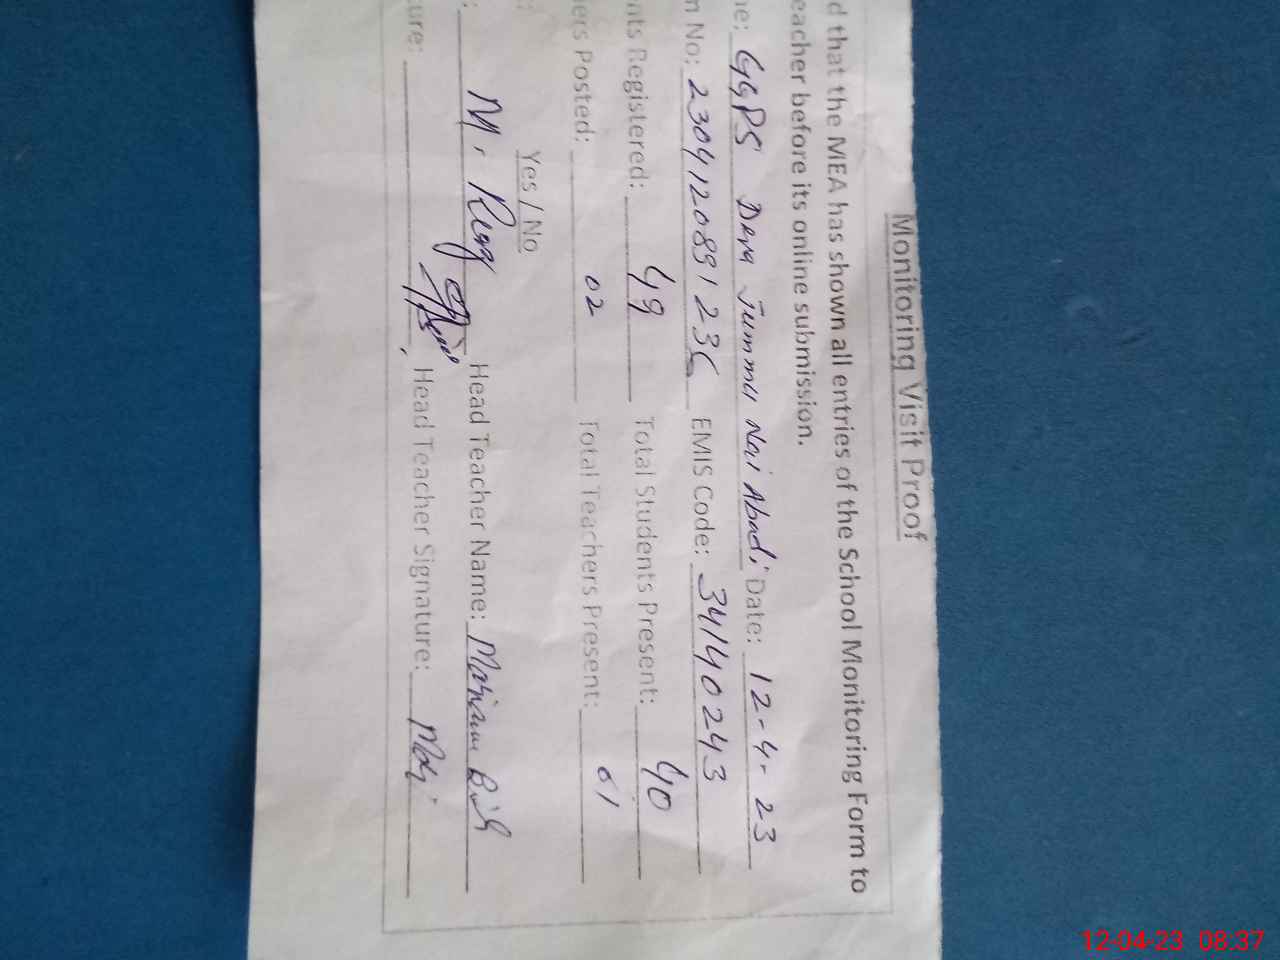 Monitoring Visit Proof
d that the MEA has shown all entries of the School Monitoring Form to
eacher before its online submission.
ne: GGPS Dera Jummu Nai Abadi Date: 12-4-23
n No: 230412089123 EMIS Code: 34140243
nts Registered: 49 Total Students Present: 40
ers Posted: 02 Total Teachers Present: 01
: Yes / No
: M. Head Teacher Name: Mariam Bibi
ure: , Head Teacher Signature:
12-04-23 08:37